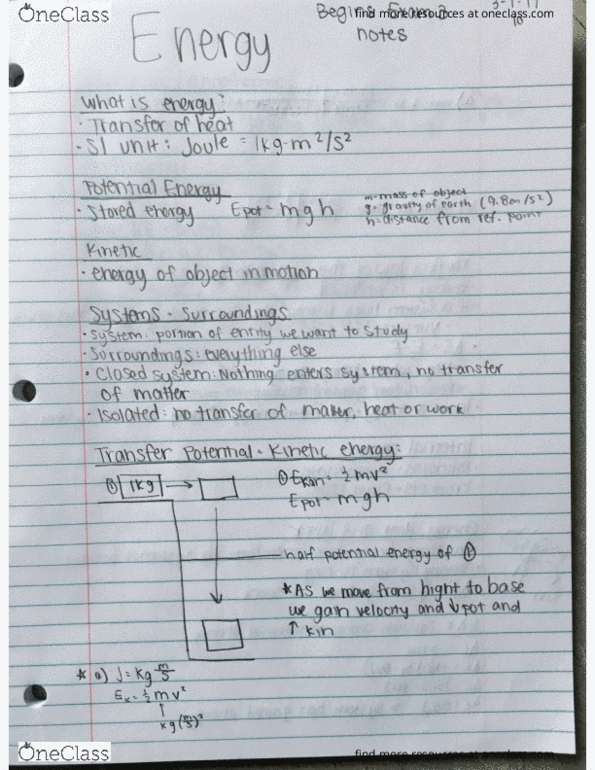 OneClass
Begins Exam 3
find more resources at oneclass.com
notes
Energy
What is energy:
· Transfer of heat
· SI unit: Joule = 1kg·m²/s²
Potential Energy
· Stored energy Epot = mgh
m=mass of object
g=gravity of earth (9.8m/s²)
h=distance from ref. point
Kinetic
· energy of object in motion
Systems · Surroundings
· System: portion of entity we want to study
· Surroundings: everything else
· Closed system: Nothing enters system, no transfer
of matter
· Isolated: no transfer of matter, heat or work
Transfer Potential · Kinetic energy:
① 1kg → ① Ekin = ½mv²
Epot = mgh
half potential energy of ①
*As we move from hight to base
we gain velocity and ↓pot and
↑ kin
* a) J = kg m/s
Ek = ½mv²
↑
kg(m/s)²
OneClass
find more resources at oneclass.com